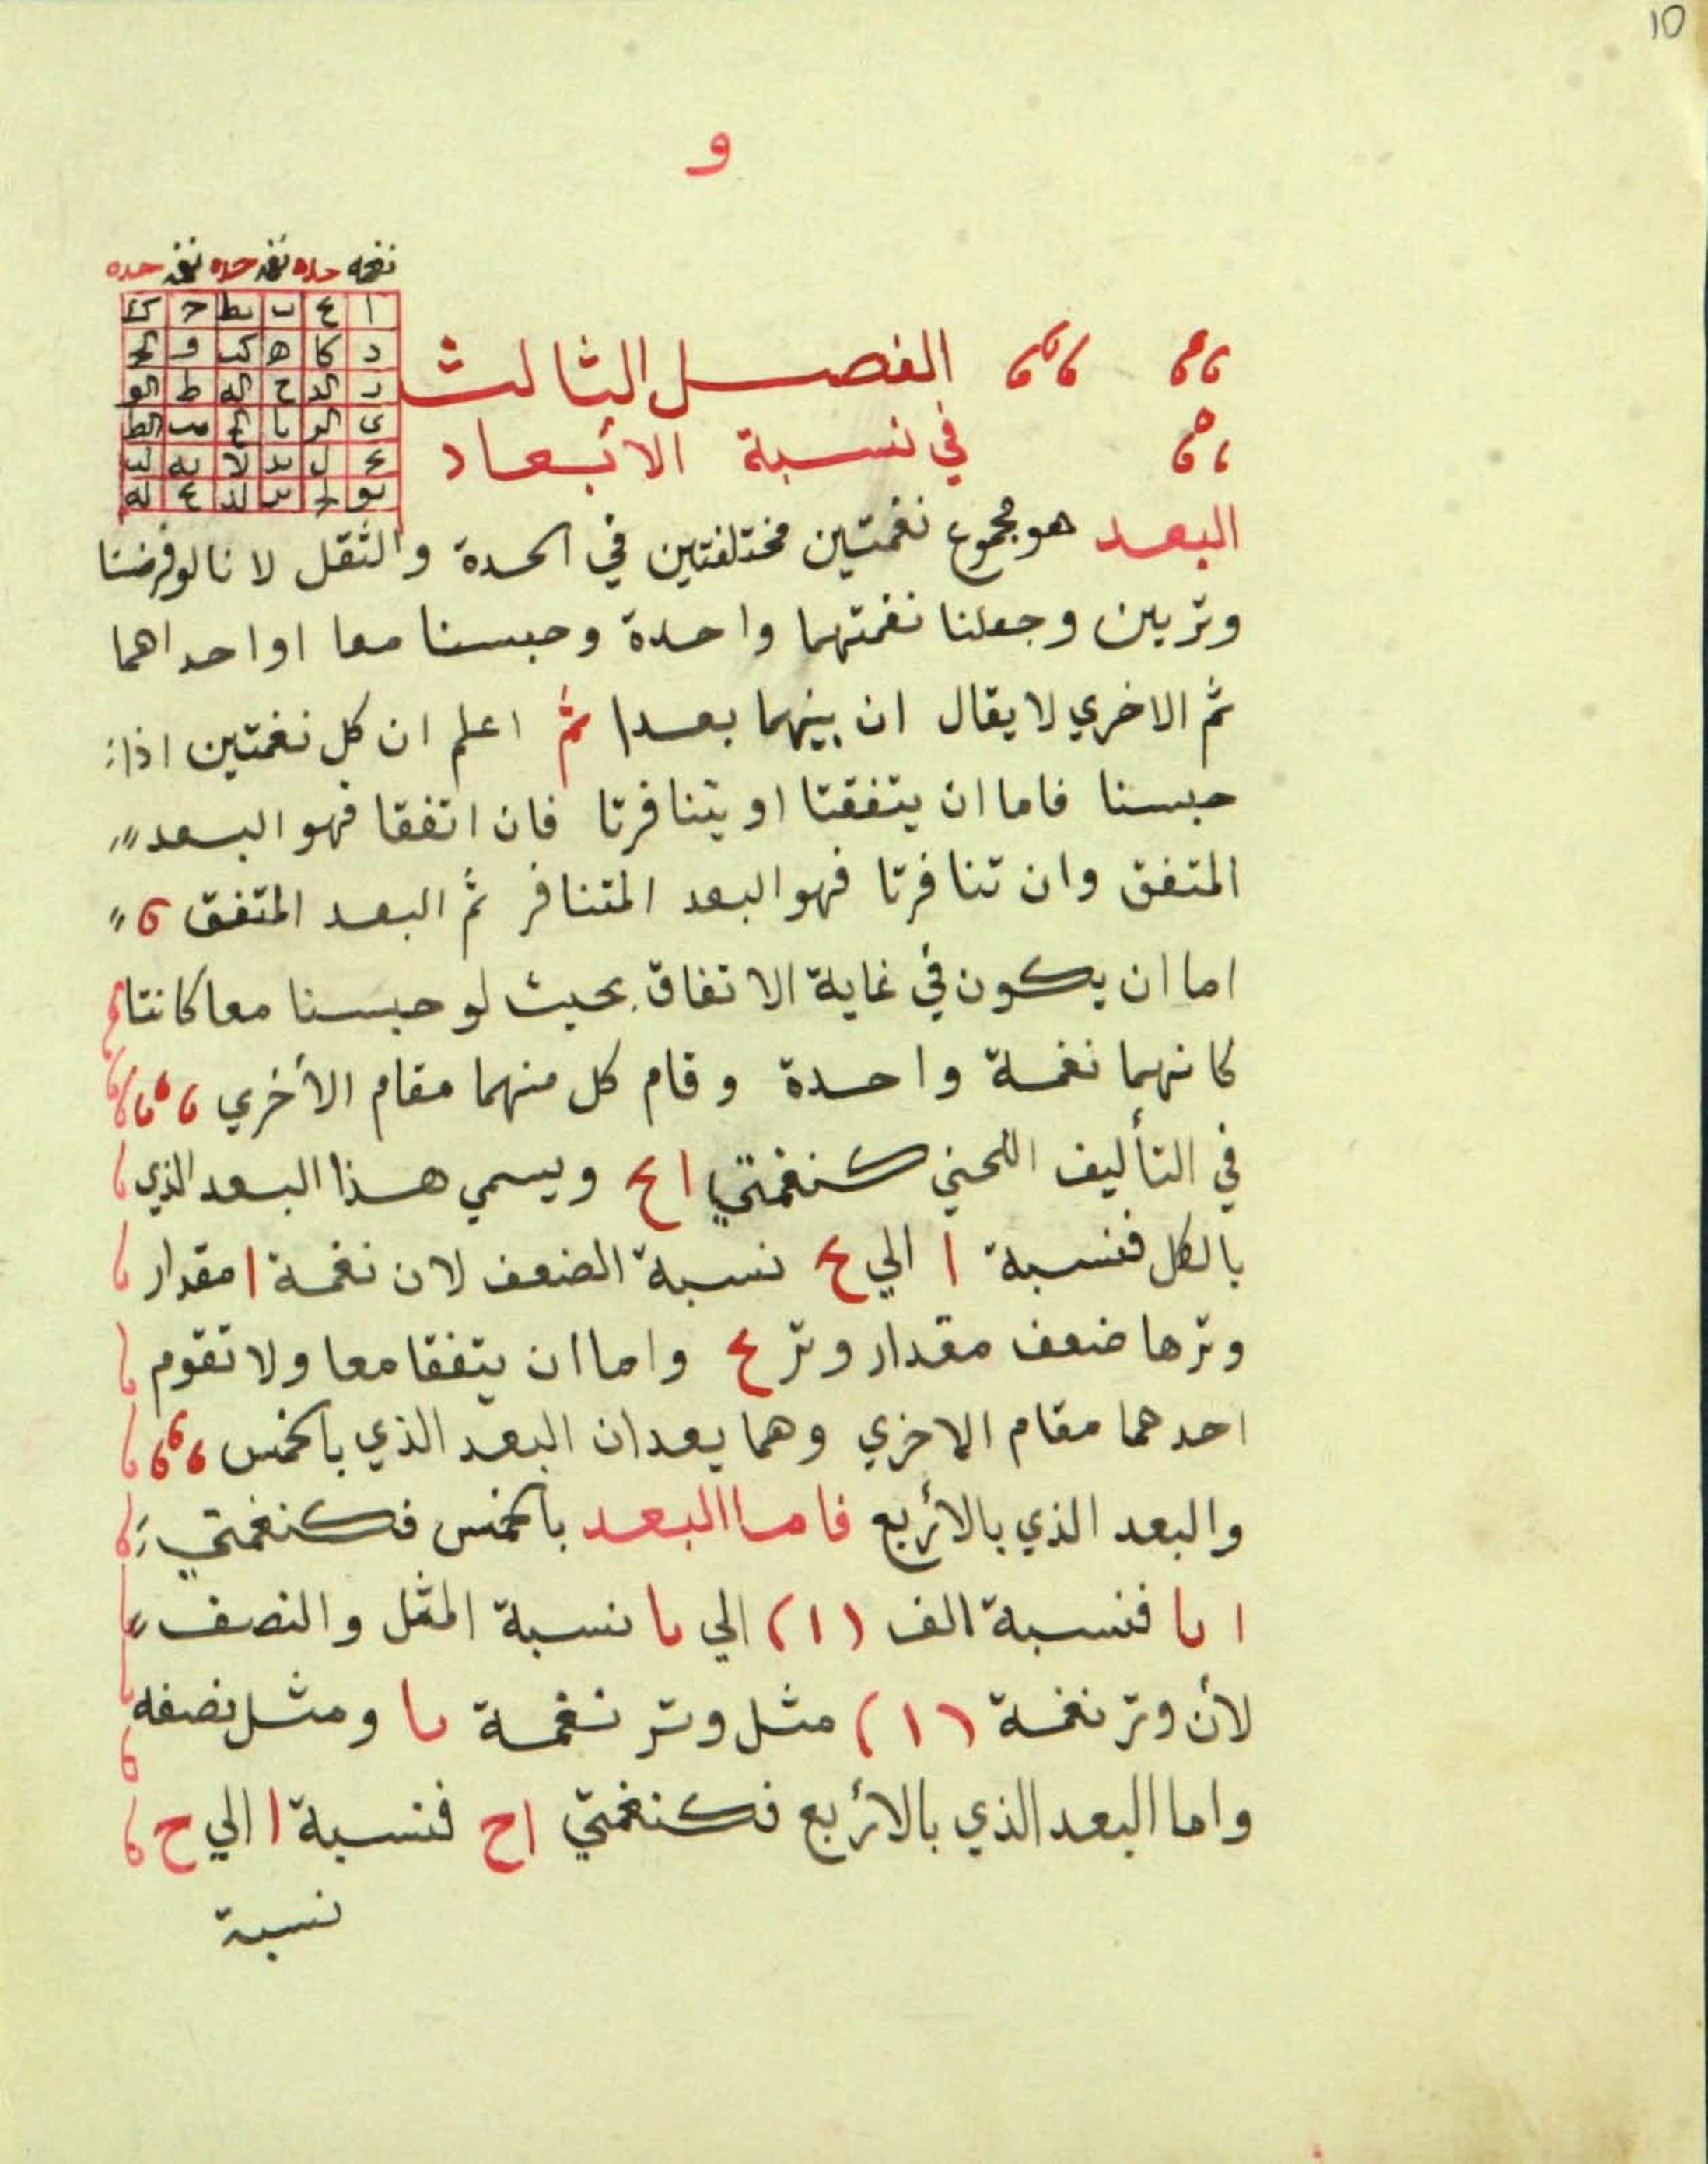 10
و
نغمه حده نغمه حده نغمه حده
ا ع ب بط ح ك
د كا ه كب و
الفصل الثالث
في نسبة الأبعاد
البعد هو مجموع نغمتين مختلفتين في الحدة والثقل لانا لو فرضنا
وتربين وجعلنا نغمتهما واحدة وحبسنا معا او احداهما
ثم الاخري لا يقال ان بينهما بعدا ثم اعلم ان كل نغمتين اذا
حبسنا فاما ان يتفقتا او يتنافرتا فان اتفقا فهو البعد
المتفق وان تنافرتا فهو البعد المتنافر ثم البعد المتفق
اما ان يكون في غاية الاتفاق بحيث لو حبسنا معا كانتا
كانهما نغمة واحدة وقام كل منهما مقام الأخري
في التأليف اللحني كنغمتي ا ع ويسمي هذا البعد الذي
بالكل فنسبة ا الي ع نسبة الضعف لان نغمة ا مقدار
وترها ضعف مقدار وتر ع واما ان يتفقا معا ولا تقوم
احدهما مقام الاخري وهما يعدان البعد الذي بالخمس
والبعد الذي بالأربع فاما البعد بالخمس فكنغمتي
ا يا فنسبة الف (ا) الي يا نسبة المثل والنصف
لأن وتر نغمة (ا) مثل وتر نغمة يا ومثل نصفه
واما البعد الذي بالأربع فكنغمتي ا ح فنسبة ا الي ح
نسبة